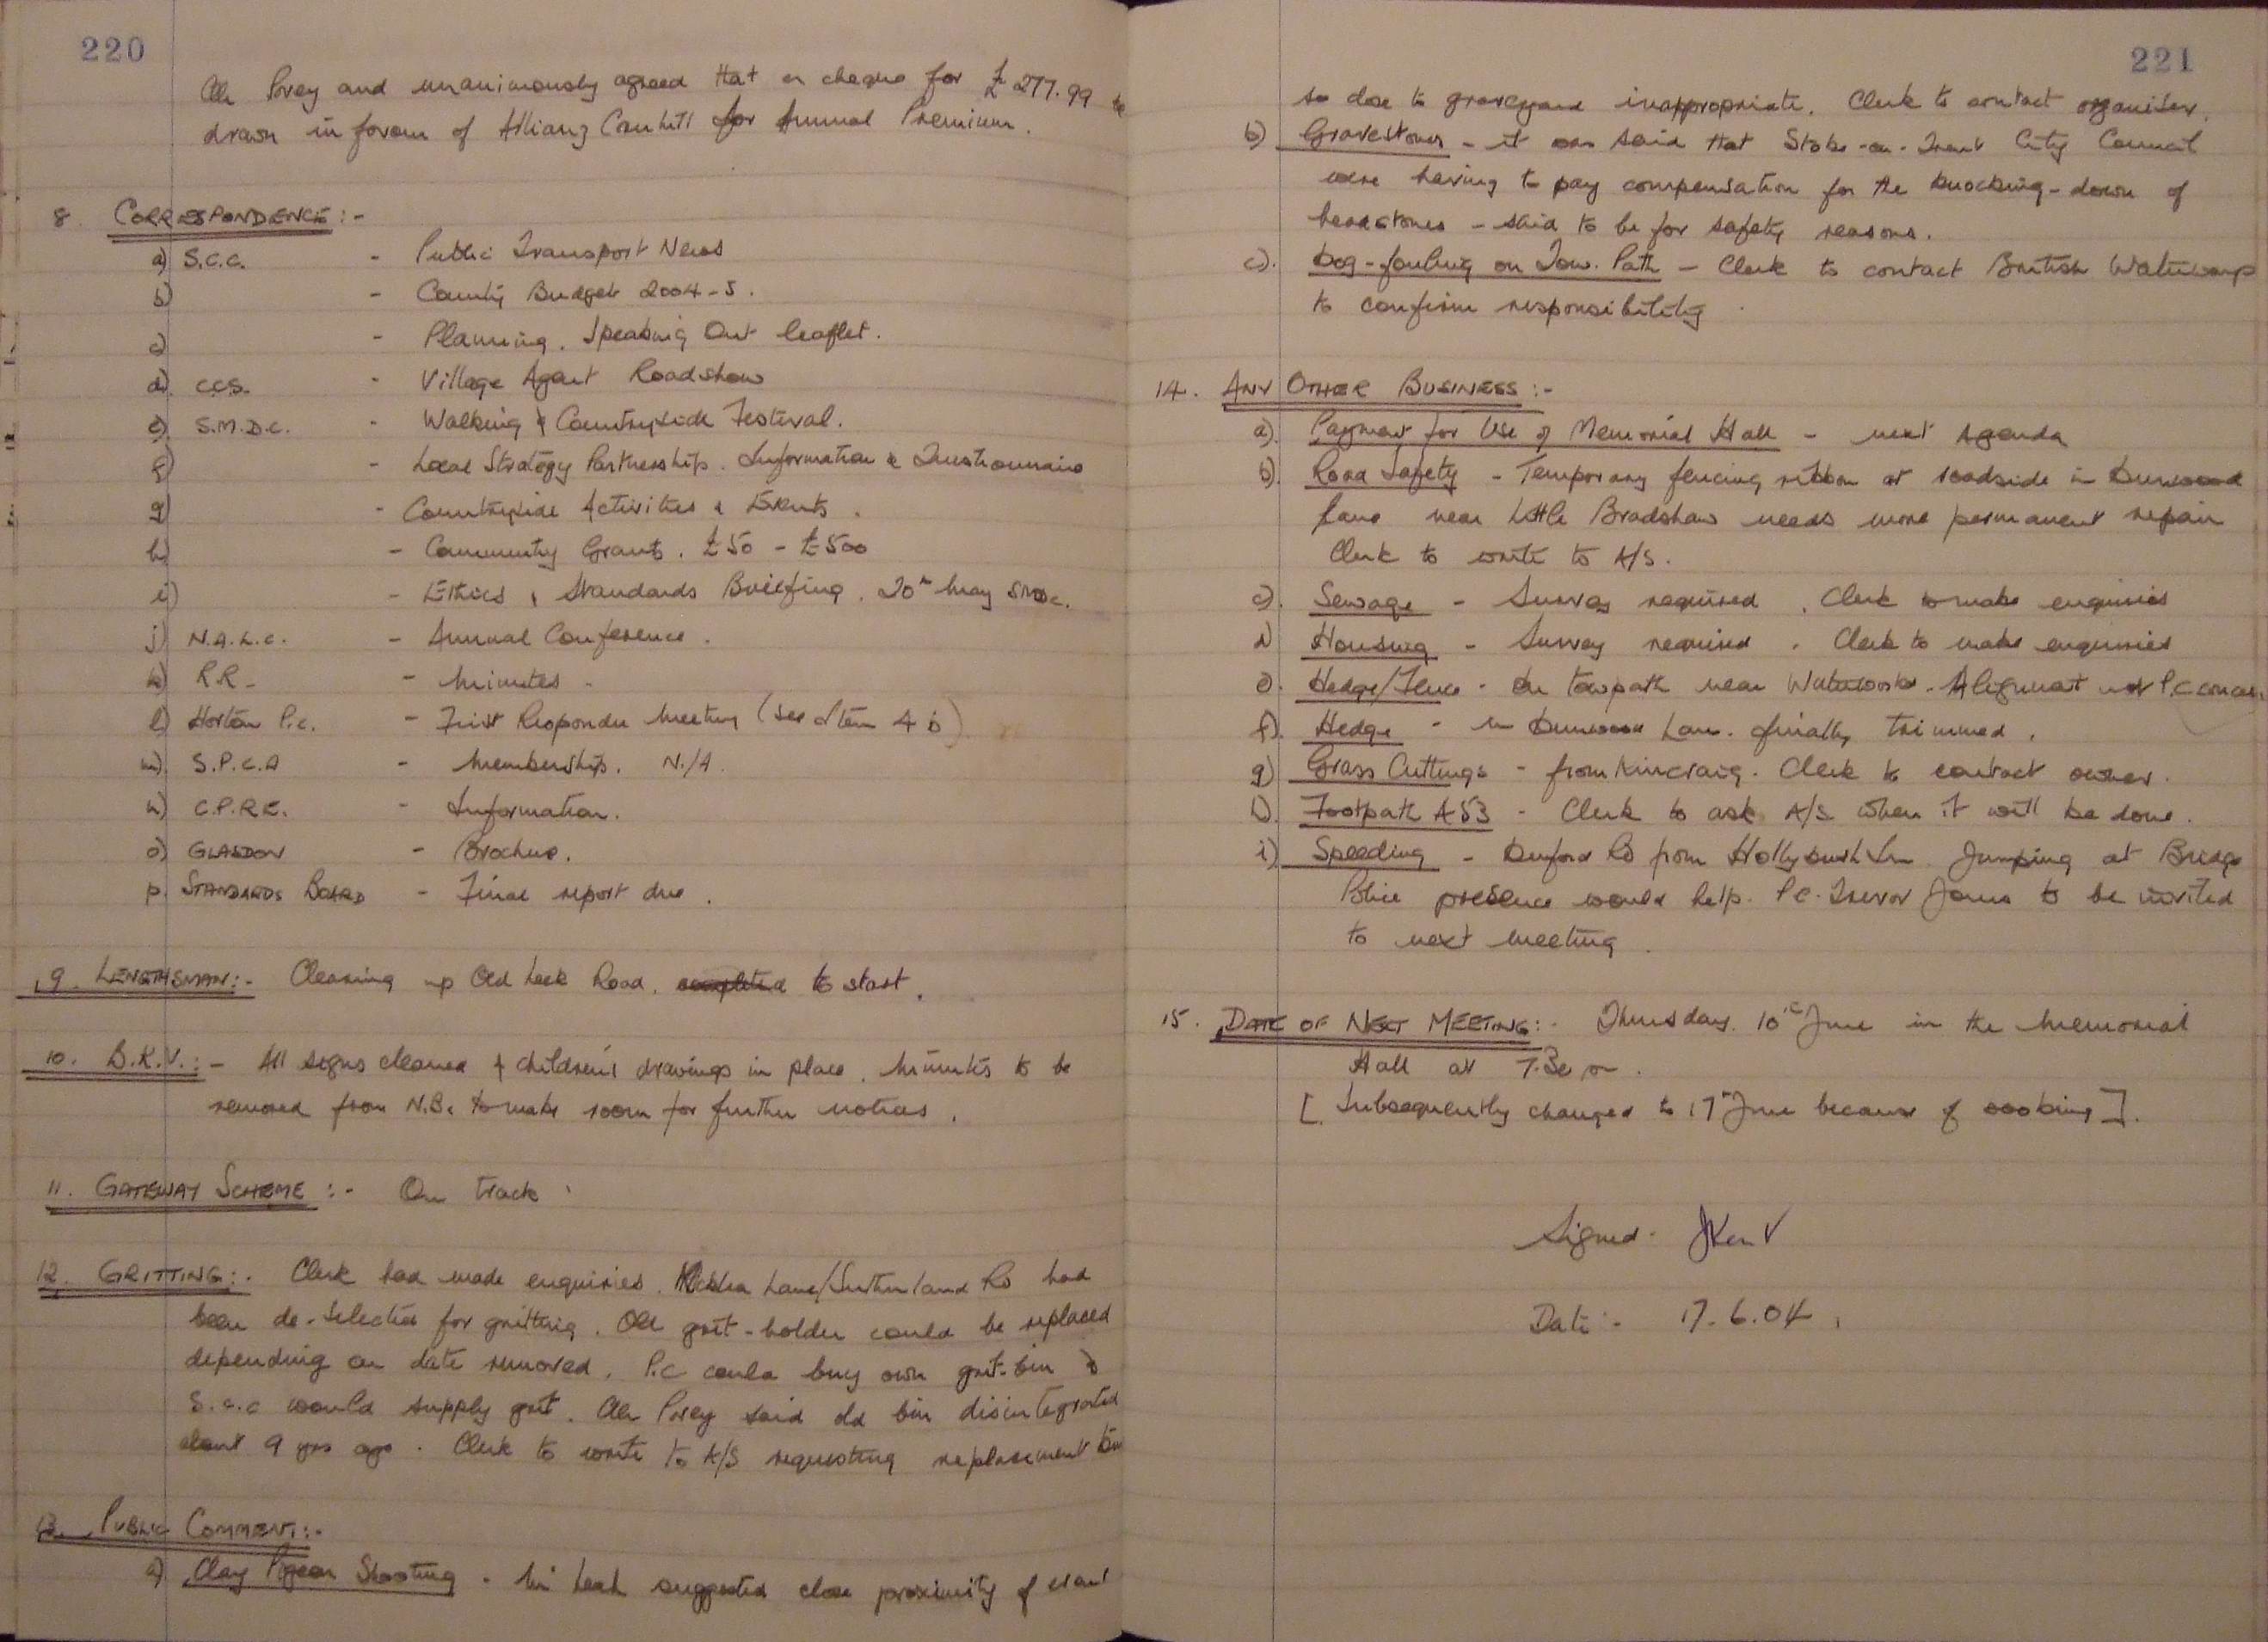 220
Cllr Povey and unanimously agreed that a cheque for £277.99 be
drawn in favour of Allianz Cornhill for Annual Premium.
8. CORRESPONDENCE:-
a) S.C.C. - Public Transport News
b) - County Budget 2004-5.
c) - Planning. Speaking Out leaflet.
d) C.C.S. - Village Agent Roadshow
e) S.M.D.C. - Walking & Countryside Festival.
f) - Local Strategy Partnership. Information & Questionnaire
g) - Countryside Activities & Events.
h) - Community Grants. £50 - £500
i) - Ethics & Standards Briefing. 20th May SMDC.
j) N.A.L.C. - Annual Conference.
k) R.R. - Minutes -
l) Horton P.C. - First Responder Meeting (see Item 4 b)
m) S.P.C.A - Membership. N/A.
n) C.P.R.E. - Information.
o) GLASDON - Brochure.
p. STANDARDS BOARD - Final report due.
9. LENGTHSMAN:- Cleaning up Old Leek Road. completed to start.
10. B.K.V.:- All signs cleaned & children's drawings in place. Minutes to be
removed from N.B. to make room for further notices.
11. GATEWAY SCHEME:- On track
12. GRITTING:- Clerk had made enquiries. Lane/Sutherland Rd had
been de-selected for gritting. Old grit-holder could be replaced
depending on date removed. P.C could buy own grit-bin &
S.C.C would supply grit. Cllr Povey said old bin disintegrated
about 9 yrs ago. Clerk to write to A/S requesting replacement bin
13. PUBLIC COMMENT:-
a) Clay Pigeon Shooting - Mr suggested close proximity of event
221
so close to graveyard inappropriate. Clerk to contact organiser.
b) Gravestones - it was said that Stoke-on-Trent City Council
were having to pay compensation for the knocking-down of
headstones - said to be for safety reasons.
c). Dog-fouling on Tow. Path - Clerk to contact British Waterways
to confirm responsibility.
14. ANY OTHER BUSINESS:-
a). Payment for Use of Memorial Hall - next Agenda
b). Road Safety - Temporary fencing ribbon at roadside in Dunwood
Lane near Little Bradshaw needs more permanent repair
Clerk to write to A/S.
c). Sewage - Survey required. Clerk to make enquiries
d) Housing - Survey required. Clerk to make enquiries
e). Hedge/Fence - On towpath near Waterworks. Alignment not P.C concern
f). Hedge - in Dunwood Lane. finally trimmed.
g) Grass Cuttings - from Kincraig. Clerk to contact owner.
h). Footpath A53 - Clerk to ask A/S when it will be done.
i) Speeding - Denford Rd from Hollybush Inn. Jumping at Bridge
Police presence would help. P.C. Trevor Jones to be invited
to next meeting.
15. DATE OF NEXT MEETING:- Thursday. 10th June in the Memorial
Hall at 7.30 pm.
[Subsequently changed to 17th June because of booking].
Signed -
Date:- 17.6.04.